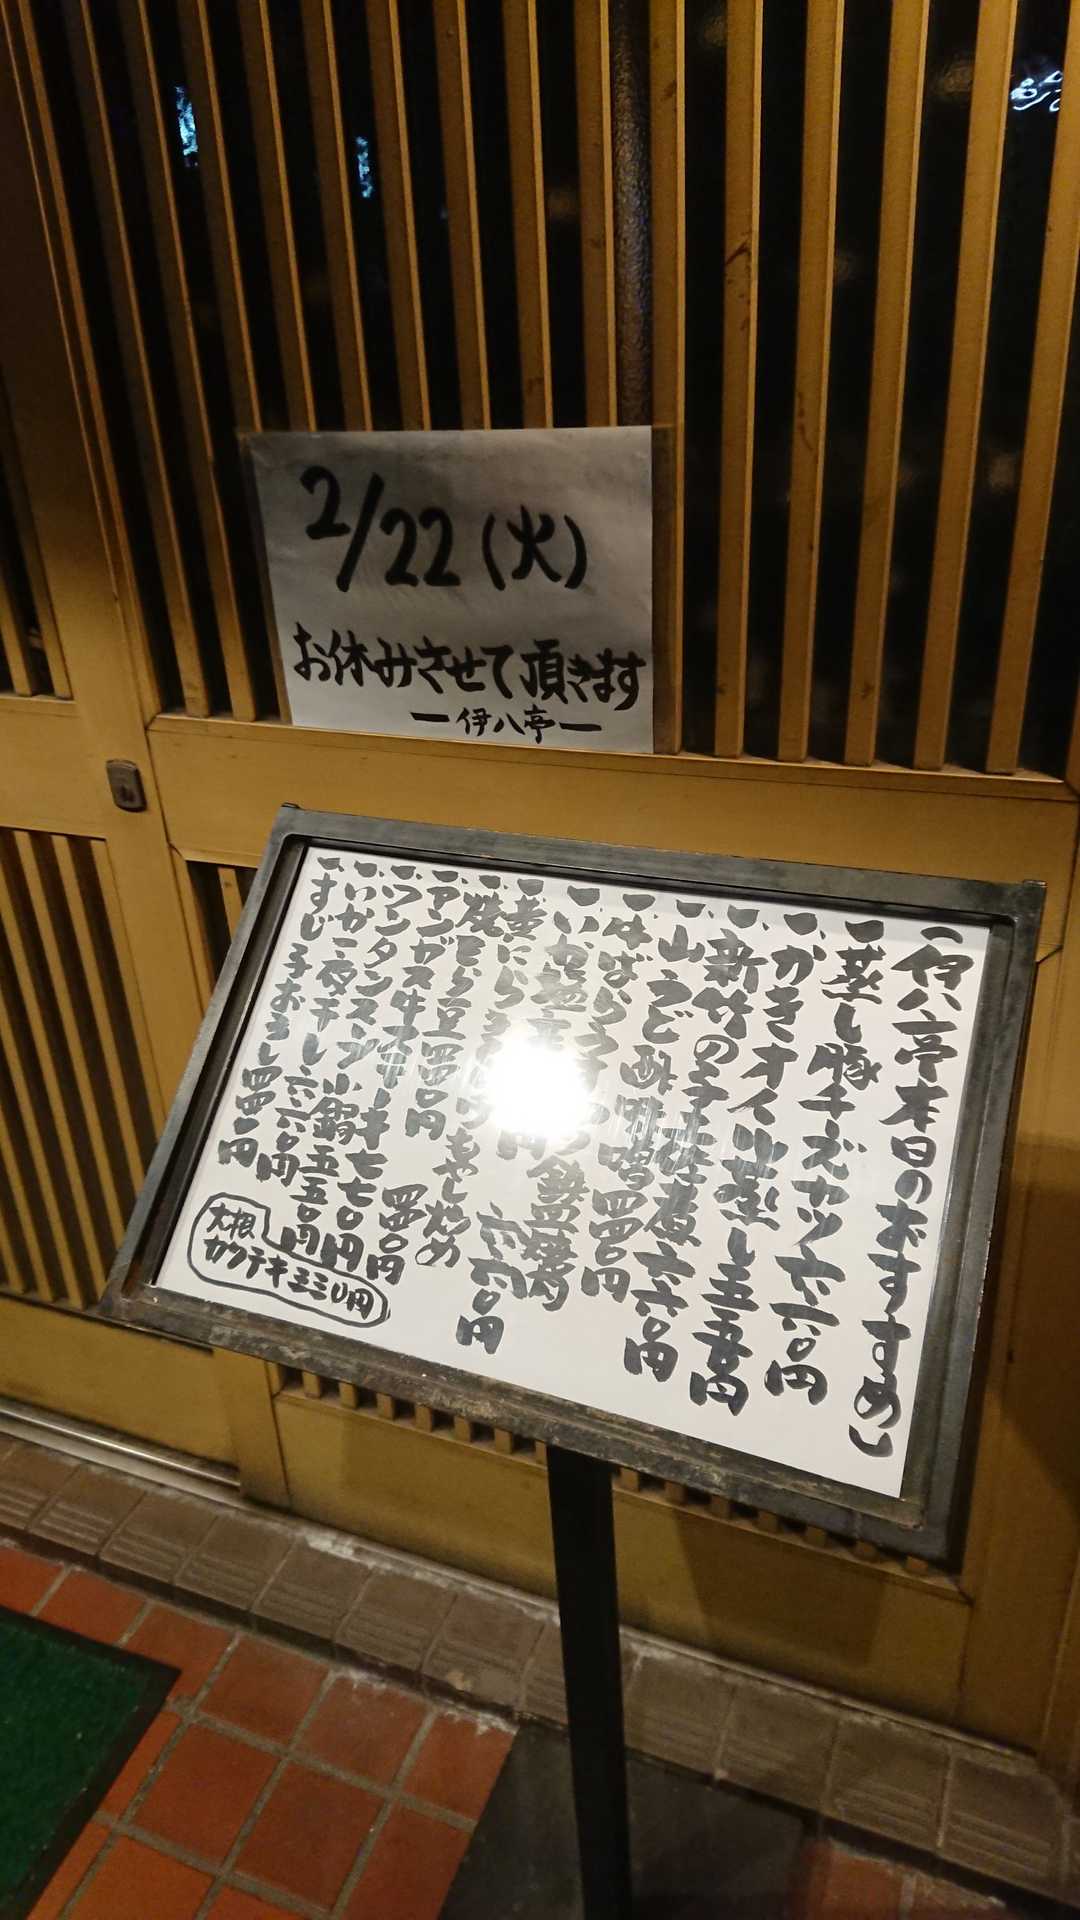 2/22(火)
お休みさせて頂きます
ー伊八亭ー
伊八亭本日のおすすめ
一、蒸し豚チーズカツ 六六〇円
一、かきオイル蒸し 五五〇円
一、新竹の子土佐煮 六六〇円
一、山うど酢味噌 四四〇円
一、牛ばら
一、いか 鉄板焼
一、黄にら もやし炒め 六六〇円
一、焼そら豆 四四〇円
一、アンガス牛ステーキ 七七〇円
一、ワンタンスープ小鍋 五五〇円
一、いか一夜干し 六六〇円
一、すじ子おろし 四四〇円
大根
カクテキ 三三〇円